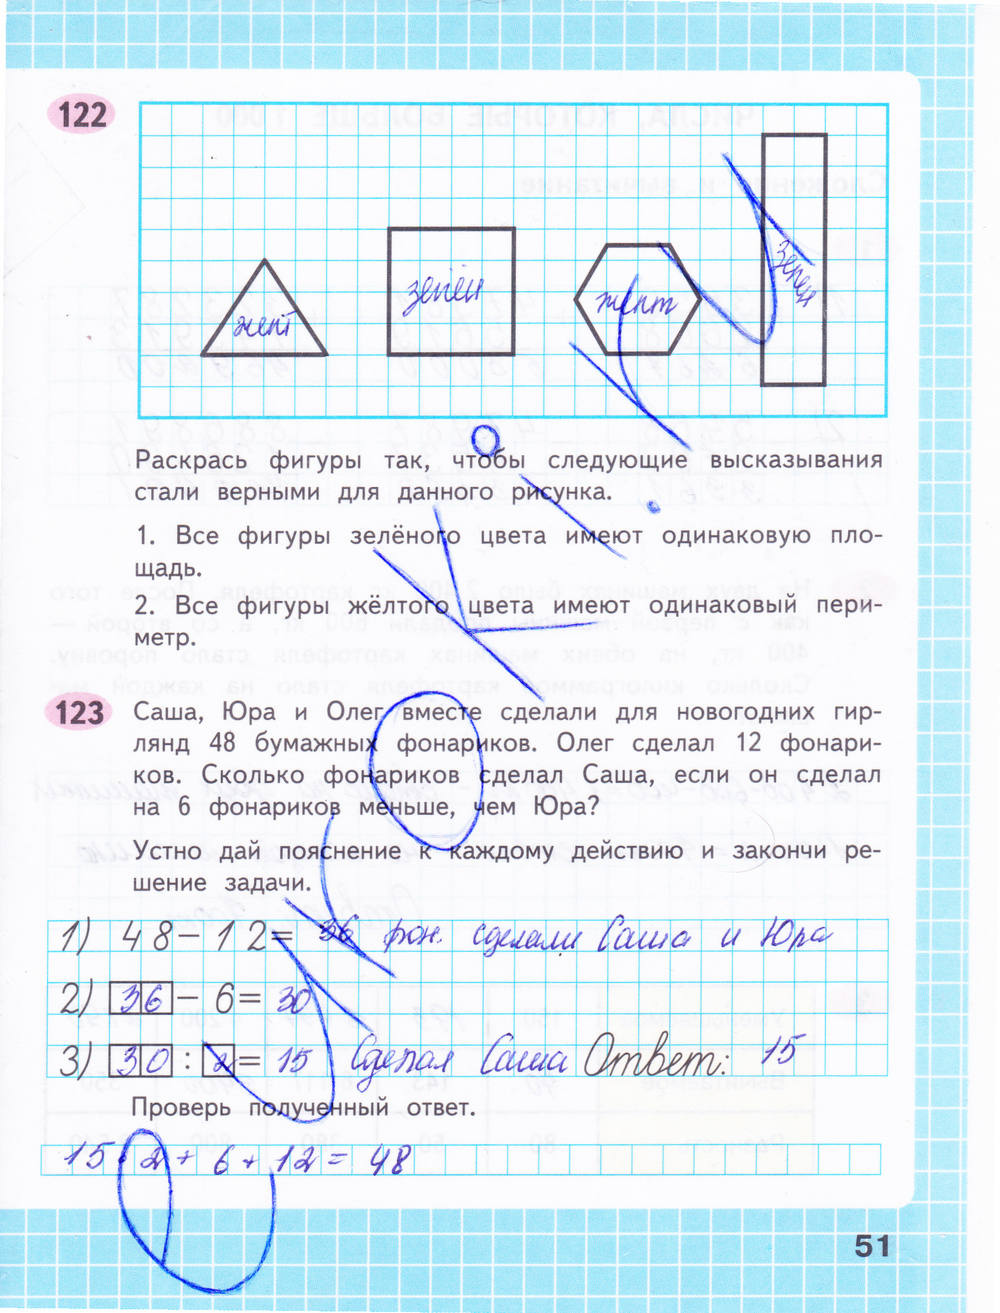 122
жёлт
зелён
жёлт
зелен
Раскрась фигуры так, чтобы следующие высказывания
стали верными для данного рисунка.
1. Все фигуры зелёного цвета имеют одинаковую пло-
щадь.
2. Все фигуры жёлтого цвета имеют одинаковый пери-
метр.
123 Саша, Юра и Олег вместе сделали для новогодних гир-
лянд 48 бумажных фонариков. Олег сделал 12 фонари-
ков. Сколько фонариков сделал Саша, если он сделал
на 6 фонариков меньше, чем Юра?
Устно дай пояснение к каждому действию и закончи ре-
шение задачи.
1) 48-12= 36 фон. сделали Саша и Юра
2) 36 - 6= 30
3) 30 : 2 = 15 Сделал Саша Ответ: 15
Проверь полученный ответ.
15 · 2 + 6 + 12 = 48
51